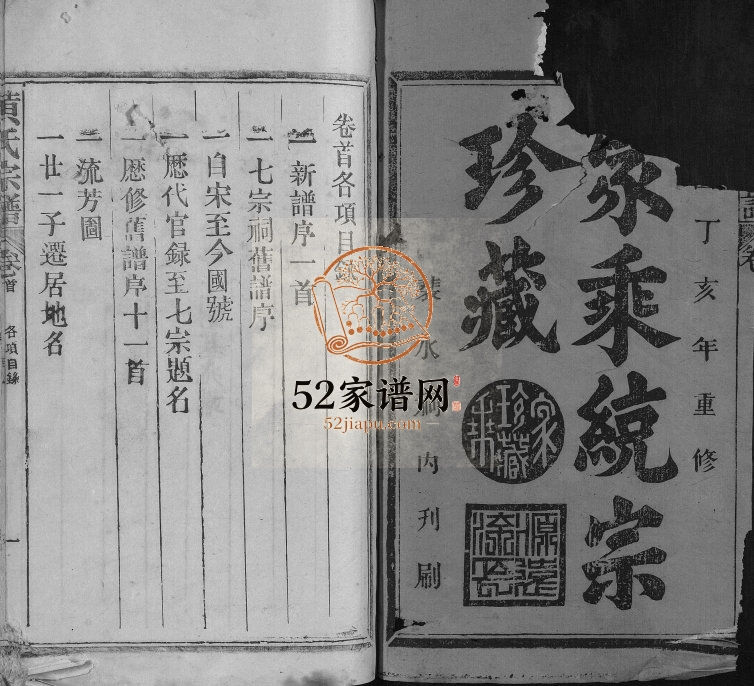 丁亥年重修
家乘統宗
珍藏
家乘珍藏
源遠流長
內刊刷
卷首各項目錄
一新譜序一首
一七宗祠舊譜序
一自宋至今國號
一歷代官録至七宗題名
一歷修舊譜序十一首
一流芳圖
一廿一子遷居地名
黃氏宗譜
卷首
各項目錄
一
52家谱网
52jiapu.com